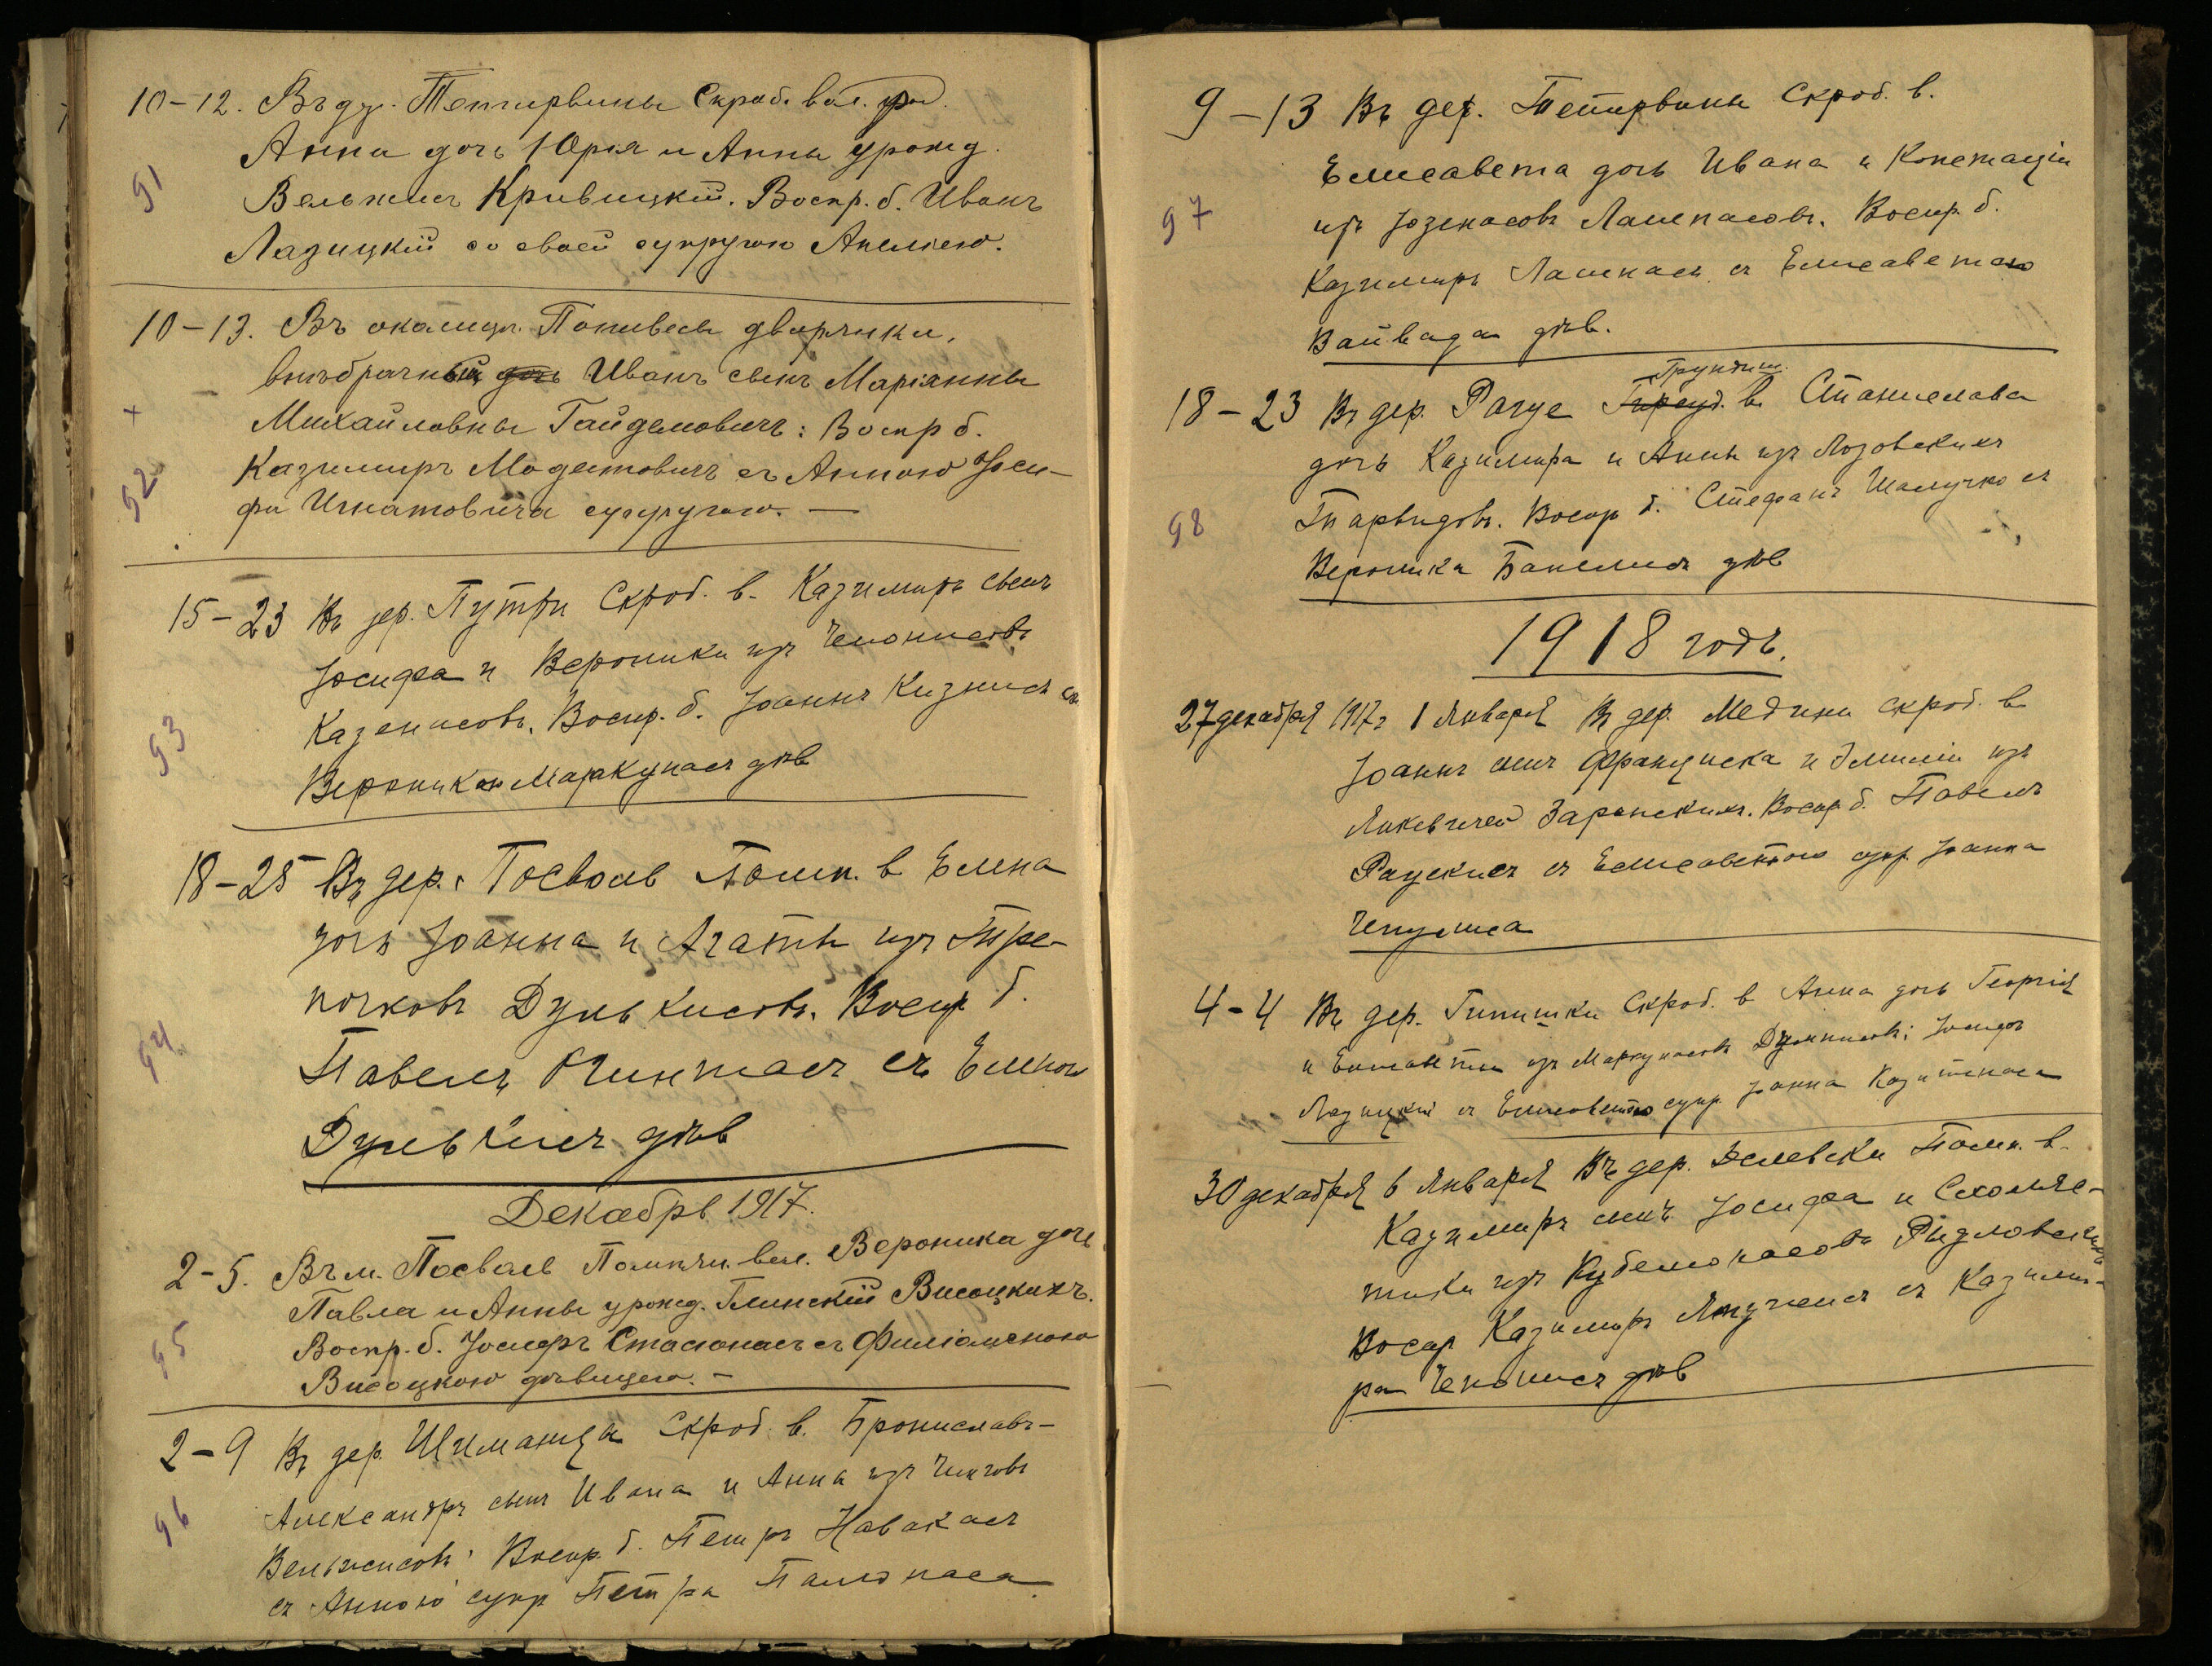 10-12. Въ дер. Тетирвины Скроб. вол. род.
Анна дочь Юрія и Анны урожд.
91
Вельжисъ Кривицкій. Воспр. б. Иванъ
Лазицкій со своей супругою Анелею.
10-13. Въ околицѣ Попивесы дворянки,
внѣбрачный дочь Иванъ сынъ Маріанны
+
Михайловны Гайдемовичъ: Воспр б.
Казимиръ Модестовичъ съ Анною Іоси-
92
фа Игнатовича супругою. —
15-23 Въ дер. Путри Скроб. в. Казимиръ сынъ
Іосифа и Вероники изъ Чепонисовъ
Казенасовъ. Воспр. б. Іоаннъ Кизнисъ съ
93
Вероникою Маркунасъ дѣв
18-25 Въ дер. Посволь Помп. в Елена
дочь Іоанна и Агаты изъ Тре-
почковъ Дулькисовъ. Воспр б.
94
Павелъ Гинтасъ съ Еленою
Дулькисъ дѣв
Декабрь 1917.
2-5. Въ м. Посволь Помпян. вол. Вероника дочь
Павла и Анны урожд. Глинскій Висоцкихъ.
95
Воспр. б. Іосифъ Стасюнасъ съ
Висоцкою дѣвицею. -
2-9 Въ дер. Шиманцы Скроб. в. Брониславъ-
Александръ сынъ Ивана и Анна изъ
96
Вельжисовъ. Воспр. б. Петръ Навакасъ
съ Анною супр Петра
9-13 Въ дер. Тетирвины Скроб. в.
Елисавета дочь Ивана и Констанціи
97
изъ Іозенасовъ Лашкасовъ. Воспр. б.
Казимиръ Лашкасъ съ Елисаветою
Вайвада дѣв.
Грундиш.
18-23 Въ дер. Рагуе в. Станислава
дочь Казимира и Анны изъ Лозовскихъ
98
Тарвидовъ. Воспр б. Стефанъ Шалучко съ
Вероника Банелисъ дѣв
1918 годъ.
27 декабря 1917 г 1 Января Въ дер. Медини Скроб. в
Іоаннъ сынъ Франциска и Эмиліи изъ
Янкевичей Зарепскихъ. Воспр б. Павелъ
Раускисъ съ Елисаветою супр Іоанна
Чепулиса
4-4 Въ дер. Гипишки Скроб. в Анна дочь Георгія
и Елисаветы изъ Маркунасовъ; Іосифъ
Лазицкій съ Елисаветою супр Іоанна
30 декабря 6 Января Въ дер. Помп. в.
Казимиръ сынъ Іосифа и Схоляс-
тики изъ
Воспр Казимиръ съ Казими-
ра Чепонисъ дѣв